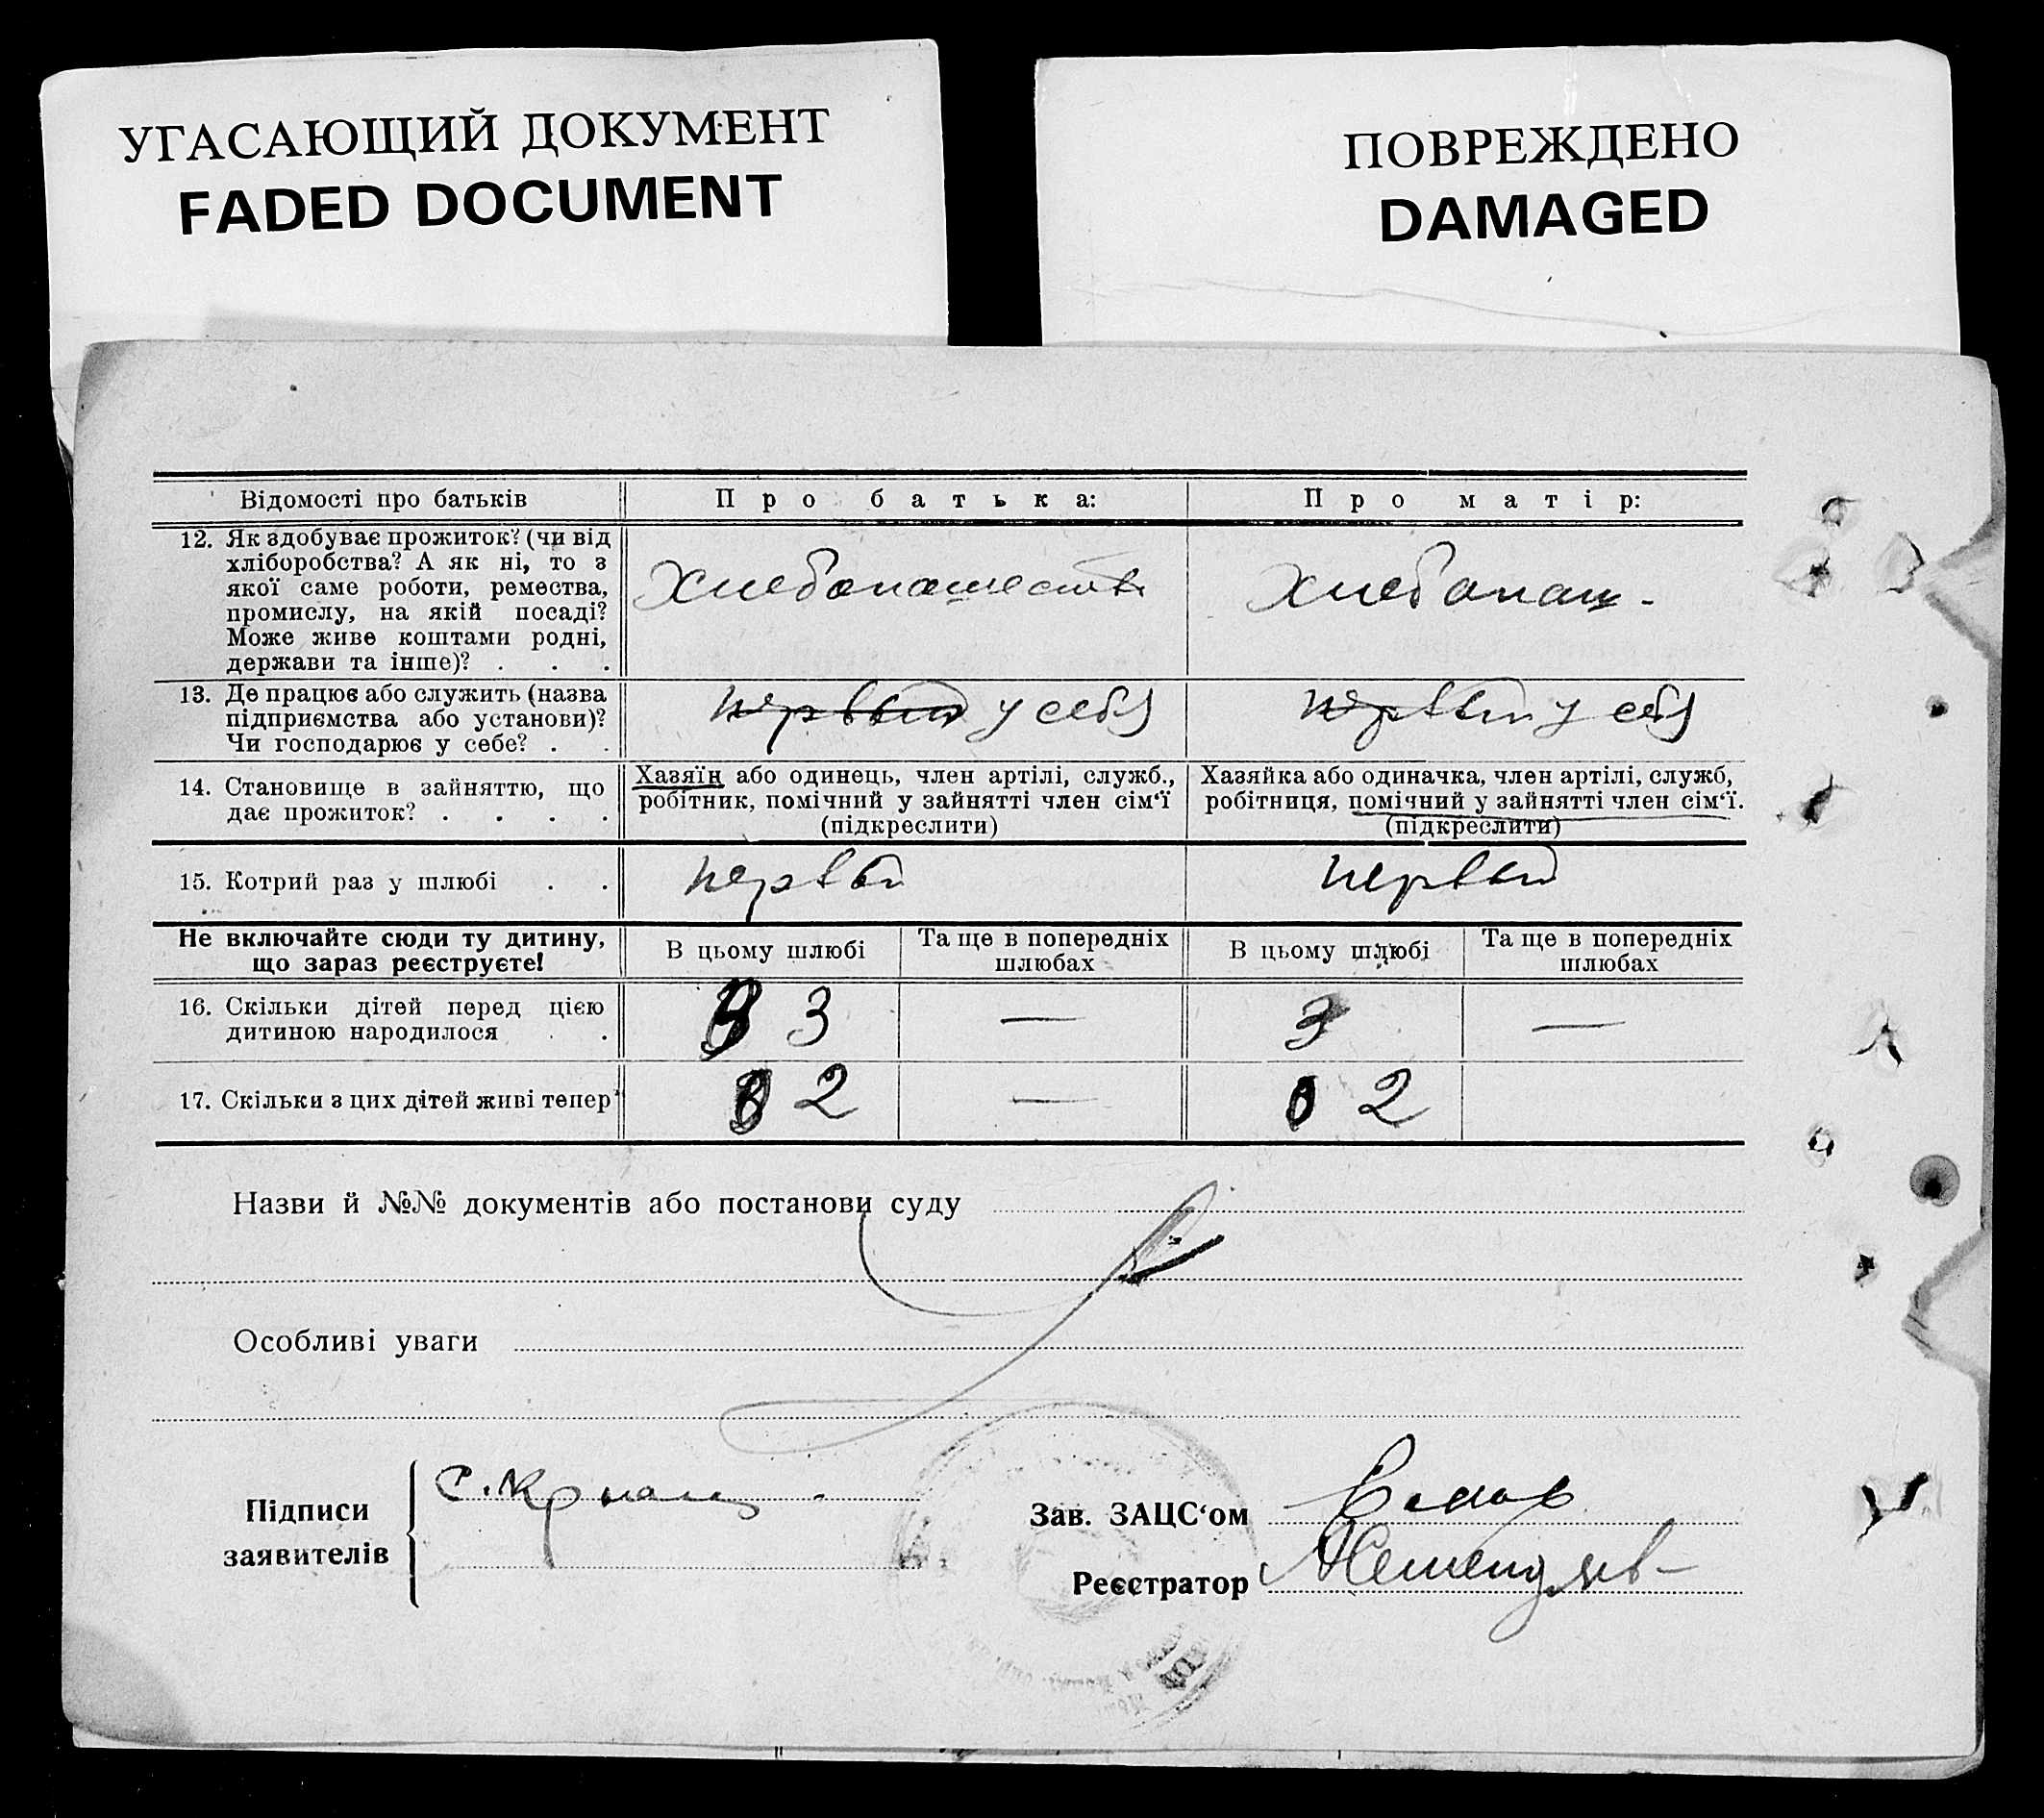 УГАСАЮЩИЙ ДОКУМЕНТ
FADED DOCUMENT
ПОВРЕЖДЕНО
DAMAGED
Відомості про батьків
Про батька:
Про матір:
12. Як здобуває прожиток? (чи від
хліборобства? А як ні, то з
якої саме роботи, ремества,
промислу, на якій посаді?
Може живе коштами родні,
держави та інше)? . . .
Хлебопашеств
Хлебопаш.
13. Де працює або служить (назва
підприємства або установи)?
Чи господарює у себе? . .
первый у себя
первый у себя
14. Становище в зайняттю, що
дає прожиток? . . . .
Хазяїн або одинець, член артілі, служб.,
робітник, помічний у зайнятті член сім‘ї
(підкреслити)
Хазяйка або одиначка, член артілі, служб,
робітниця, помічний у зайнятті член сім‘ї.
(підкреслити)
15. Котрий раз у шлюбі . .
первый
первый
Не включайте сюди ту дитину,
що зараз реєструєте!
В цьому шлюбі
Та ще в попередніх
шлюбах
В цьому шлюбі
Та ще в попередніх
шлюбах
16. Скільки дітей перед цією
дитиною народилося . .
3
—
3
—
17. Скільки з цих дітей живі тепер
2
—
2
Назви й №№ документів або постанови суду
Особливі уваги
Підписи
заявителів
Зав. ЗАЦС‘ом
Реєстратор